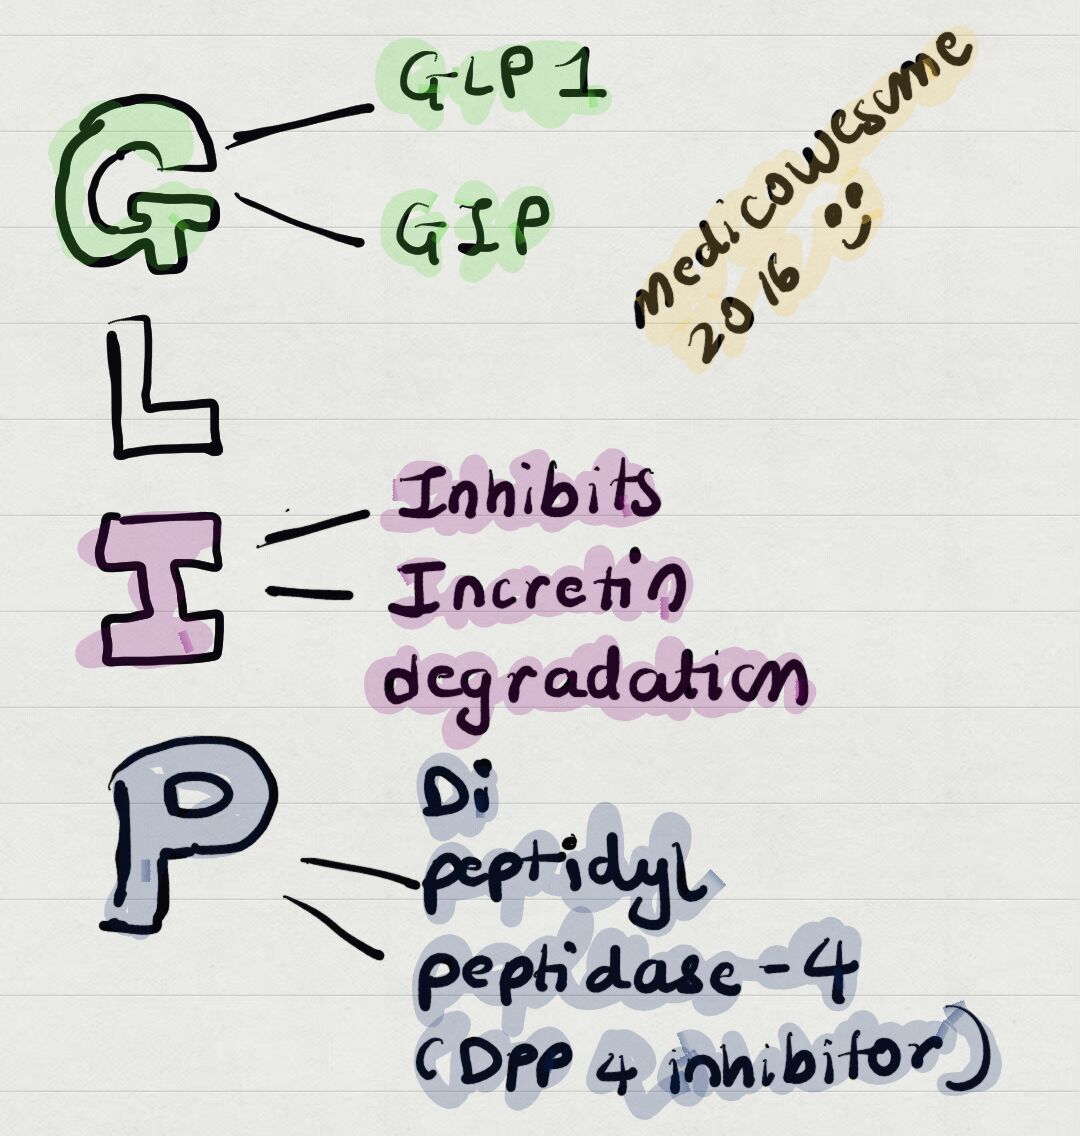 G
GLP 1
GIP
medicowesome
2016
L
I
Inhibits
Incretin
degradation
P
Di
peptidyl
peptidase-4
(DPP 4 inhibitor)